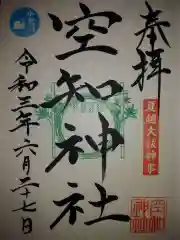 奉拝
夏越大祓神事
空知神社
空知
神社
令和三年六月二十七日